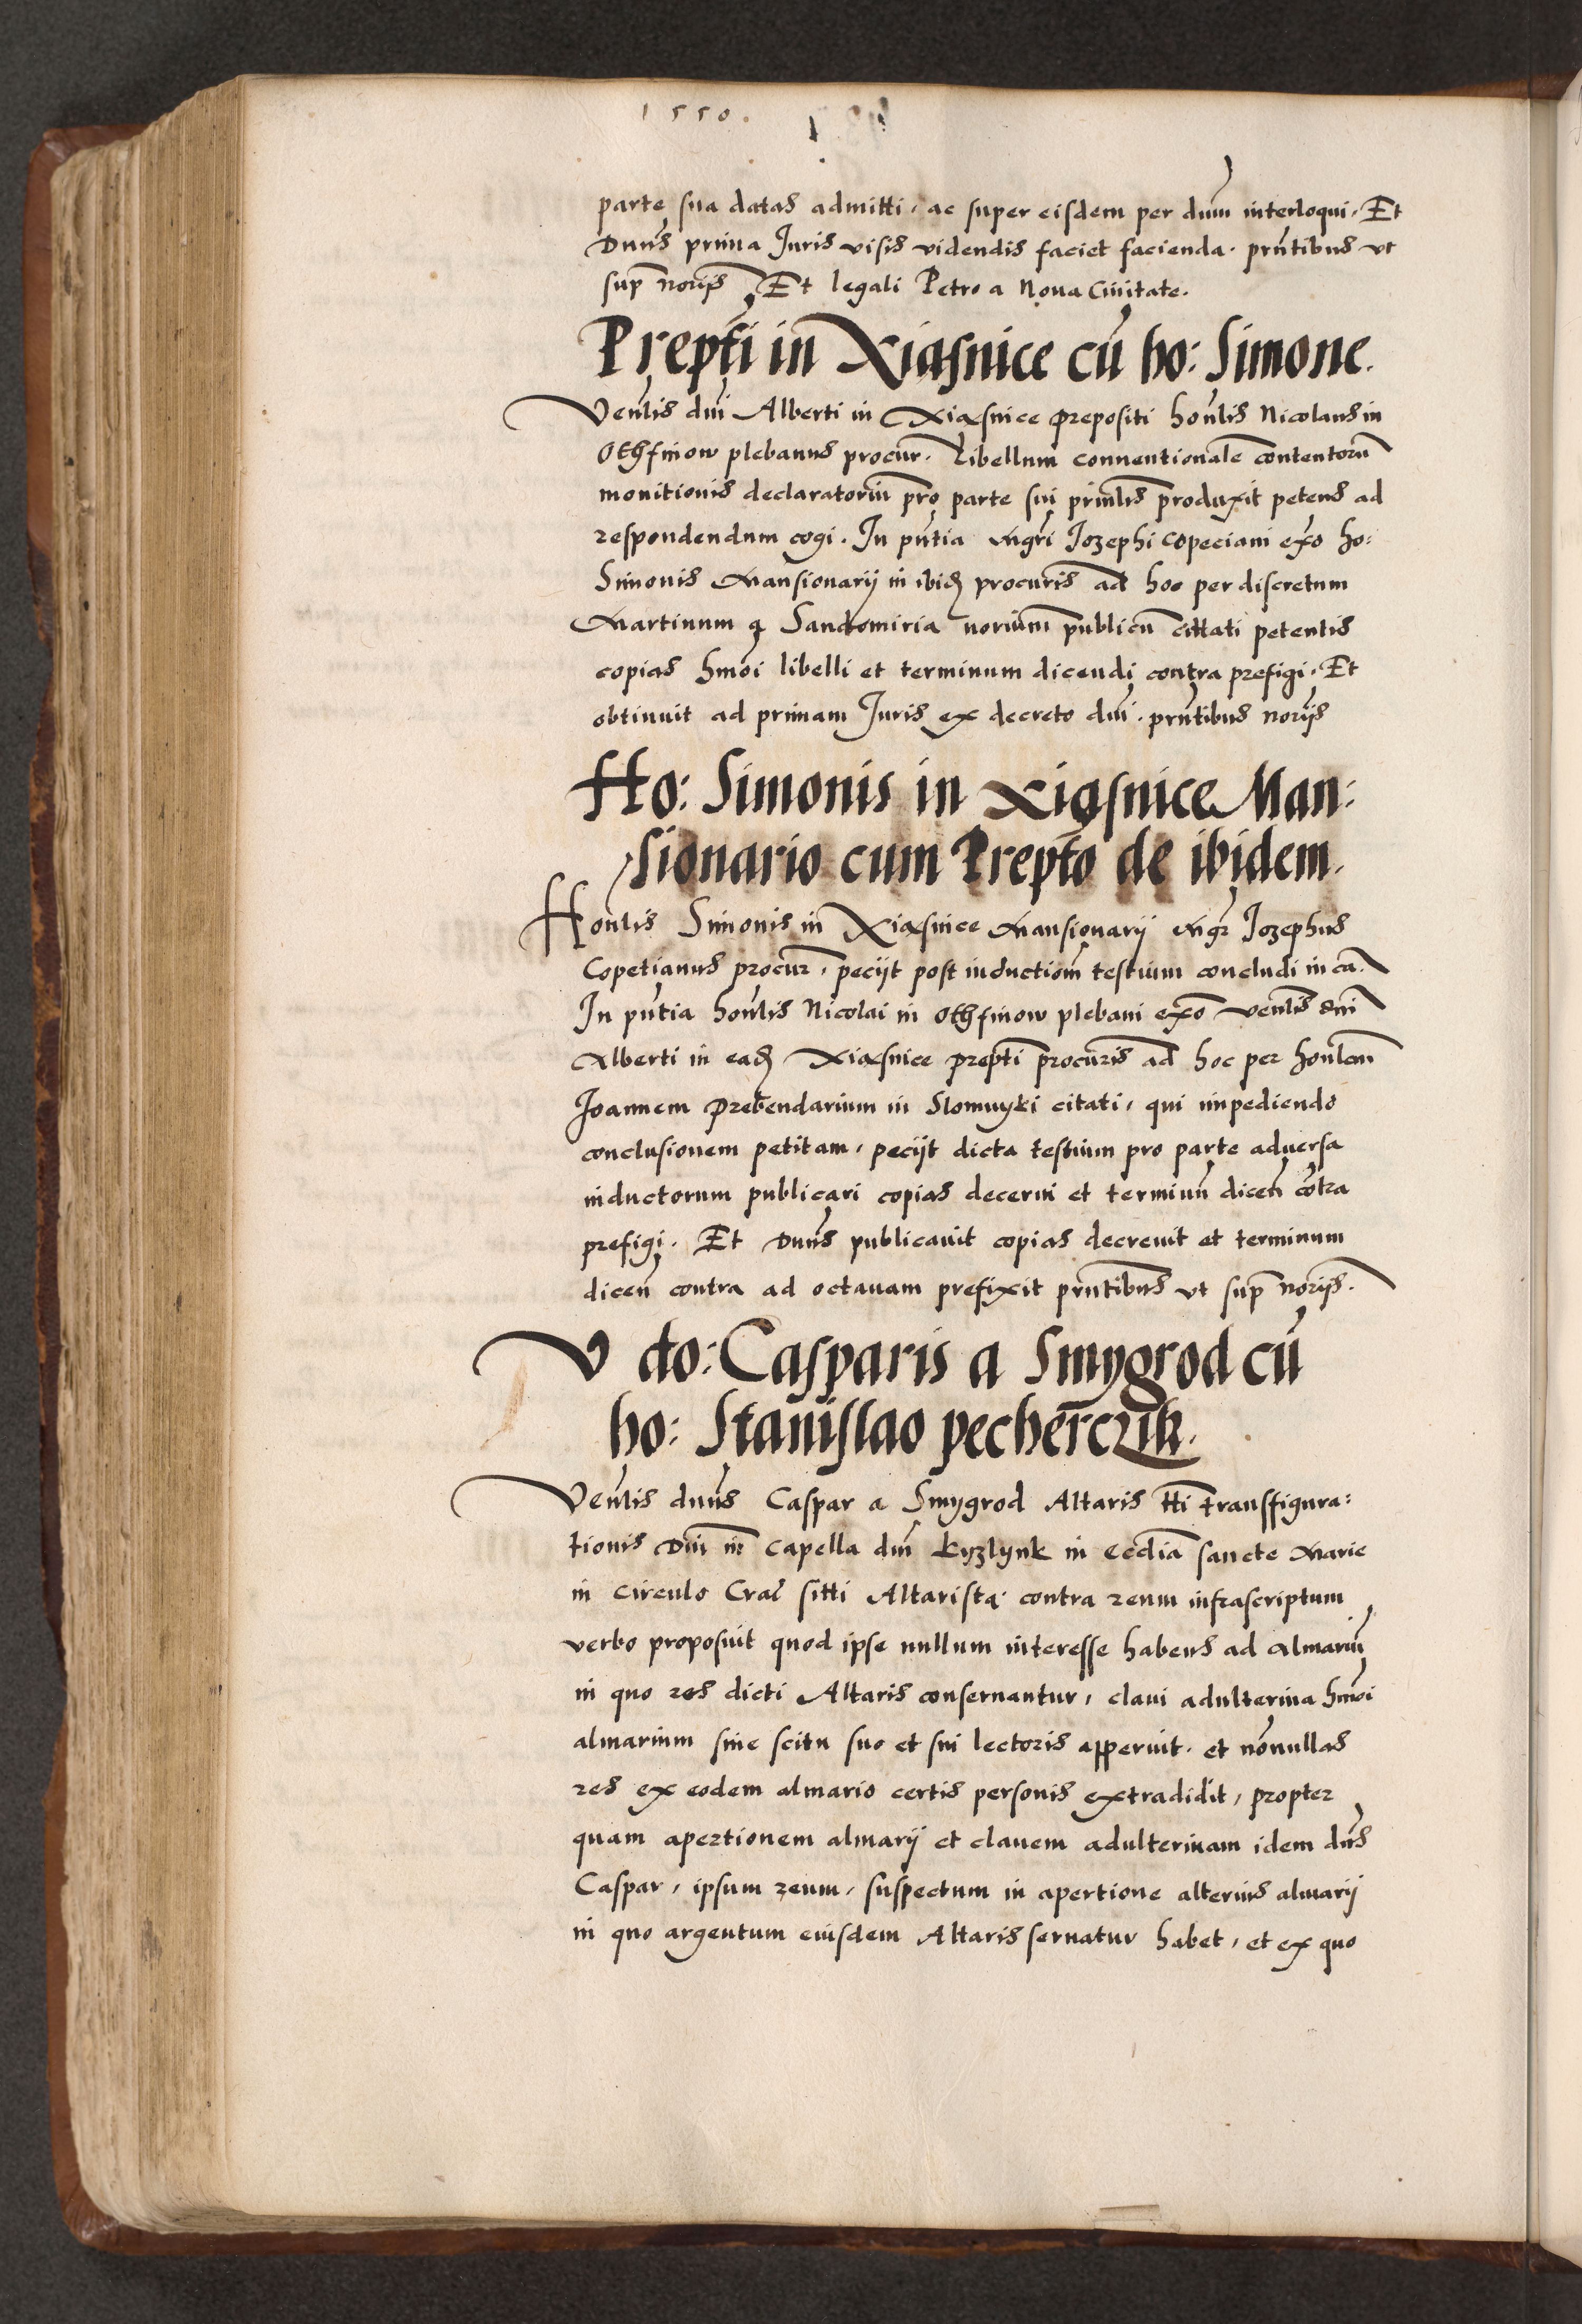 1550.
parte sua datas admitti, ac super eisdem per dnm̄ interloqui. Et
Dnn̄s prima Juris visis videndis faciet facienda. prn̄tibus vt
sup̄ norijs Et legali Petro a Noua Ciuitate.
Prep̄ti in Xiąsnice cū ho: Simone.
Ven̄lis dn̄i Alberti in Xiąsnice prepositi hon̄lis Nicolaus in
Othfinow plebanus procur̄. Libellum conuentionalē contentorū
monitionis declaratoriū pro parte sui prin̄lis produxit petens ad
respondendum cogi. In pn̄tia Mgr̄i Jozephi Copeciani exo ho:
Simonis Mansionarij in ibid̄ procuris ad hoc per discretum
Martinum a Sandomiria noriūm publicū cittati petentis
copias hmōi libelli et terminum dicendi contra prefigi. Et
obtinuit ad primam Juris ex decreto dn̄i. prn̄tibus norijs
Ho: Simonis in Xiąsnice Man:
sionario cum Prep̄to de ibidem.
Hon̄lis Simonis in Xiąsnice Mansionarij Mgr̄ Jozephus
Copetianus procur̄, pecijt post inductionē testium concludi in cā.
In pn̄tia hon̄lis Nicolai in Othfinow plebani exō ven̄lis dn̄i
Alberti in ead̄ Xiąsnice prep̄ti procuris ad hoc per hon̄lem
Joannem Prebendarium in Slomnyki citati, qui impediendo
conclusionem petitam, pecijt dicta testium pro parte aduersa
inductorum publicari copias decerni et terminū dicen̄ cōtra
prefigi. Et Dnn̄s publicauit copias decreuit et terminum
dicen̄ contra ad octauam prefixit prn̄tibus vt sup̄ norijs.
V do: Casparis a Smygrod cū
ho: Stanislao pecherczik.
Ven̄lis dnn̄s Caspar a Smygrod Altaris tti transfigura:
tionis Dn̄i in Capella dn̄i Kyzlynk in Eccl̄ia sancte Marie
in circulo Crac̄ sitti Altarista contra reum infrascriptum
verbo proposuit quod ipse nullum interesse habens ad almariū
in quo res dicti Altaris conseruantur, claui adulterina hmōi
almarium sine scitu suo et sui lectoris apperuit. et nōnullas
res ex eodem almario certis personis extradidit, propter
quam apertionem almarij et clauem adulterinam idem dn̄s
Caspar, ipsum reum, suspectum in apertione alterius almarij
in quo argentum eiusdem Altaris seruatur habet, et ex quo